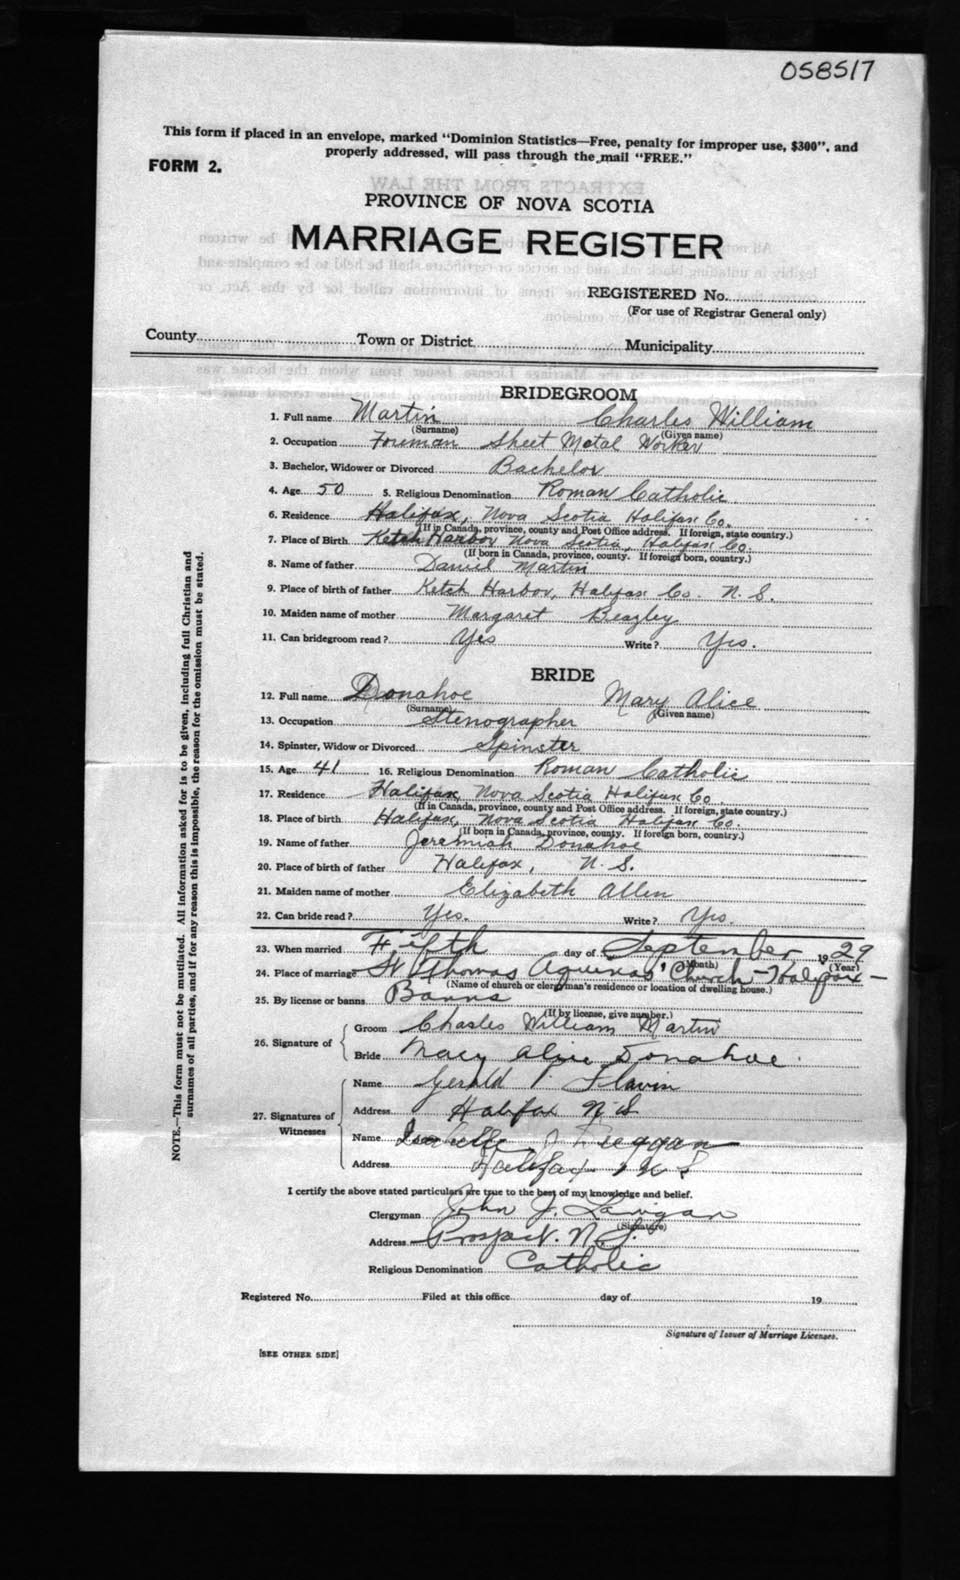 058517
This form if placed in an envelope, marked "Dominion Statistics—Free, penalty for improper use, $300", and
properly addressed, will pass through the mail "FREE."
FORM 2.
PROVINCE OF NOVA SCOTIA
MARRIAGE REGISTER
REGISTERED No.
(For use of Registrar General only)
County Town or District Municipality
BRIDEGROOM
1. Full name Martin Charles William
(Surname) (Given name)
2. Occupation Foreman Sheet Metal Worker
3. Bachelor, Widower or Divorced Bachelor
4. Age 50 5. Religious Denomination Roman Catholic
6. Residence Halifax, Nova Scotia Halifax Co.
(If in Canada, province, county and Post Office address. If foreign, state country.)
7. Place of Birth Ketch Harbor Nova Scotia, Halifax Co.
(If born in Canada, province, county. If foreign born, country.)
8. Name of father Daniel Martin
9. Place of birth of father Ketch Harbor, Halifax Co. N.S.
10. Maiden name of mother Margaret Beazley
11. Can bridegroom read? Yes Write? Yes.
BRIDE
12. Full name Donahoe Mary Alice
(Surname) (Given name)
13. Occupation Stenographer
14. Spinster, Widow or Divorced Spinster
15. Age 41 16. Religious Denomination Roman Catholic
17. Residence Halifax, Nova Scotia Halifax Co.
(If in Canada, province, county and Post Office address. If foreign, state country.)
18. Place of birth Halifax, Nova Scotia Halifax Co.
(If born in Canada, province, county. If foreign born, country.)
19. Name of father Jeremiah Donahoe
20. Place of birth of father Halifax, N.S.
21. Maiden name of mother Elizabeth Allen
22. Can bride read? Yes. Write? Yes.
23. When married Fifth day of September 1929
(Month) (Year)
24. Place of marriage St Thomas Aquinas' Church - Halifax -
(Name of church or clergyman's residence or location of dwelling house.)
25. By license or banns Banns
(If by license, give number.)
26. Signature of
Groom Charles William Martin
Bride Mary Alice Donahoe.
27. Signatures of Witnesses
Name Gerald P. Flavin
Address Halifax N.S
Name J
Address Halifax N S
I certify the above stated particulars are true to the best of my knowledge and belief.
Clergyman John J. Lanigan
(Signature)
Address Prospect. N.S.
Religious Denomination Catholic
Registered No. Filed at this office day of 19
Signature of Issuer of Marriage Licenses.
[SEE OTHER SIDE]
NOTE.—This form must not be mutilated. All information asked for is to be given, including full Christian and
surnames of all parties, and if for any reason this is impossible, the reason for the omission must be stated.